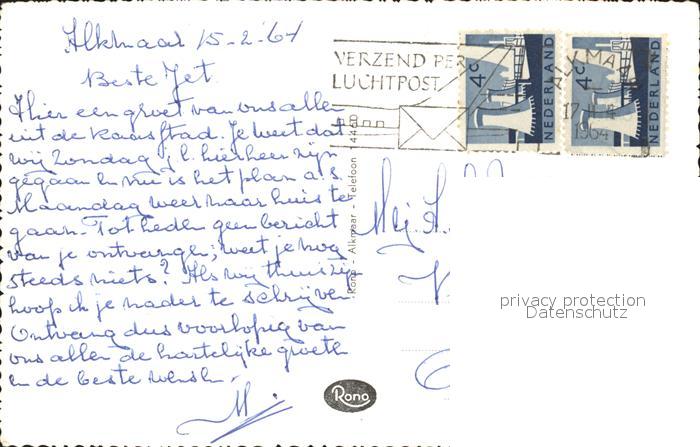 Alkmaar 15-2-'64
Beste Jet.
Hier een groet van ons allen
uit de Kaasstad. Je weet dat
wij Zondag j.l. hierheen zijn
gegaan en nu is het plan a.s.
Maandag weer naar huis te
gaan. Tot heden geen bericht
van je ontvangen; weet je nog
steeds niets? Als wij thuis zijn
hoop ik je nader te schrijven
Ontvang dus voorlopig van
ons allen de hartelijke groeten
en de beste wensen.
M.
VERZEND PER
LUCHTPOST
ALKMAAR
1964
4c
NEDERLAND
4c
NEDERLAND
Rono - Alkmaar - Telefoon 4460
Mej. A.
Rono
privacy protection
Datenschutz